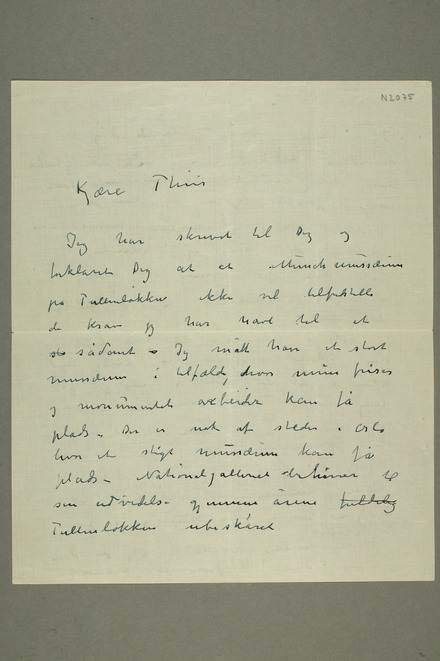 N2075
Kjære Thiis
Jeg har skrevet til Dig og
forklaret Dig at et Munchmusæum
på Tullinløkken ikke vil tilfredstille
de krav jeg har havt til et
sådant – Jeg måtte have et stort
musæum i tilfælde, hvor mine friser
og monumentale arbeider kan få
plads – Der er nok af steder i Oslo
hvor et sligt musæum kan få
plads – Nationalgalleriet behøver til
sin udvidelse gjennem årene
Tullinløkken ubeskåret